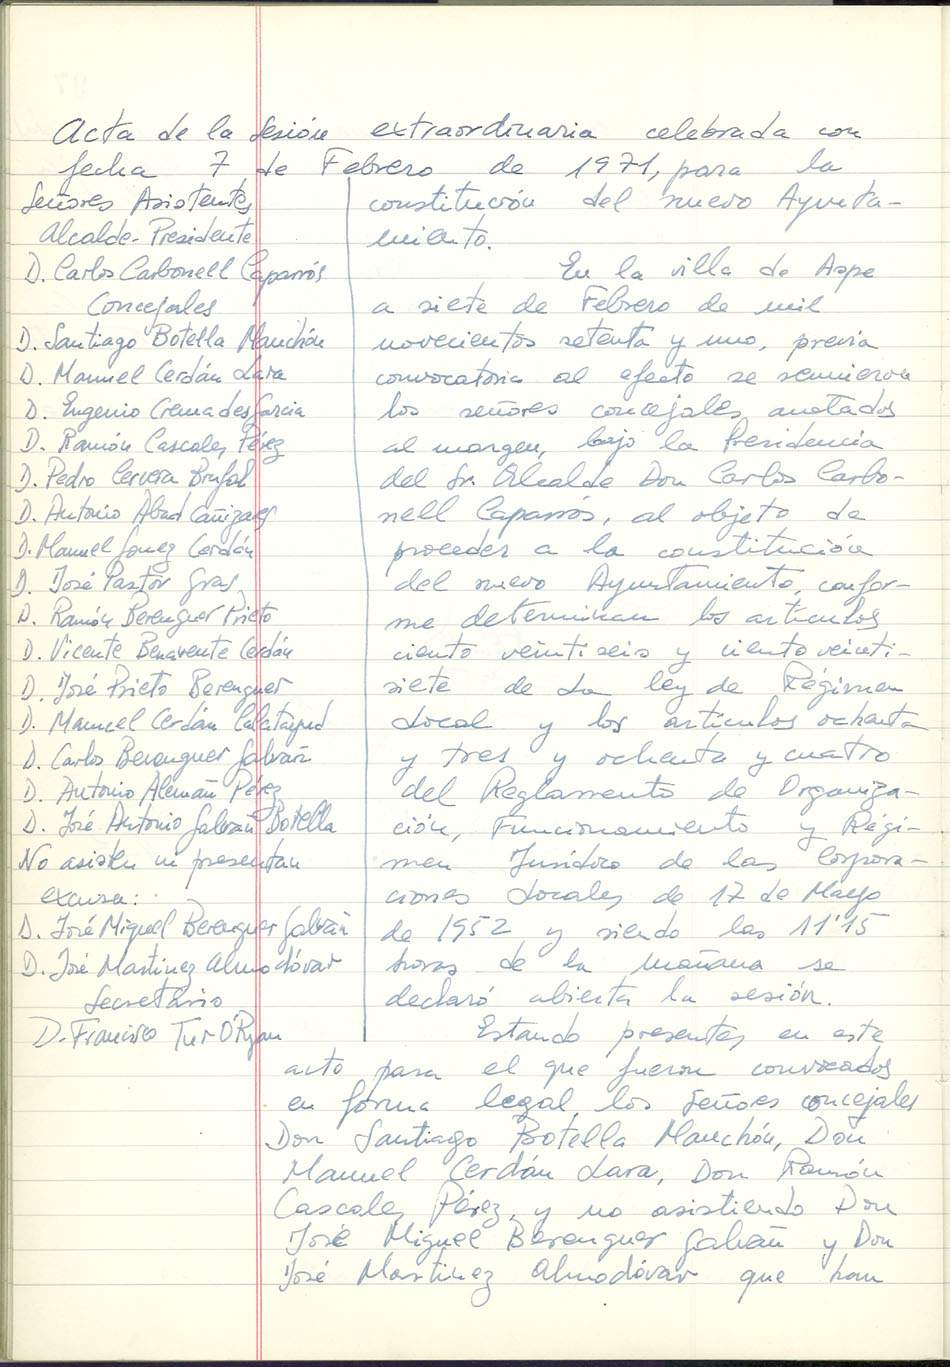 Acta de la sesión extraordinaria celebrada con
fecha 7 de Febrero de 1971, para la
constitución del nuevo Ayunta-
miento.
Señores Asistentes
Alcalde-Presidente
D. Carlos Carbonell Caparrós
Concejales
D. Santiago Botella Manchón
D. Manuel Cerdán Lara
D. Eugenio Cremades Garcia
D. Ramón Cascales Pérez
D. Pedro Cervera Brufal
D. Antonio Abad Cañizares
D. Manuel Gomez Cerdán
D. José Pastor Gras
D. Ramón Berenguer Prieto
D. Vicente Benavente Cerdán
D. José Prieto Berenguer
D. Manuel Cerdán Calatayud
D. Carlos Berenguer Galvañ
D. Antonio Alemañ Pérez
D. José Antonio Galvañ Botella
No asisten ni presentan
excusa:
D. José Miguel Berenguer Galvañ
D. José Martinez Almodóvar
Secretario
D. Francisco Tur O'Ryan
En la villa de Aspe
a siete de Febrero de mil
novecientos setenta y uno, previa
convocatoria al efecto se reunieron
los señores concejales anotados
al margen, bajo la Presidencia
del Sr. Alcalde Don Carlos Carbo-
nell Caparrós, al objeto de
proceder a la constitución
del nuevo Ayuntamiento, confor-
me determinan los artículos
ciento veintiseis y ciento veinti-
siete de La ley de Régimen
Local y los artículos ochenta
y tres y ochenta y cuatro
del Reglamento de Organiza-
ción, Funcionamiento y Régi-
men Jurídico de las Corpora-
ciones Locales de 17 de Mayo
de 1952 y siendo las 11'15
horas de la mañana se
declaró abierta la sesión.
Estando presentes en este
acto para el que fueron convocados
en forma legal, los señores concejales
Don Santiago Botella Manchón, Don
Manuel Cerdán Lara, Don Ramón
Cascales Pérez, y no asistiendo Don
José Miguel Berenguer Galvañ y Don
José Martinez Almodóvar que han